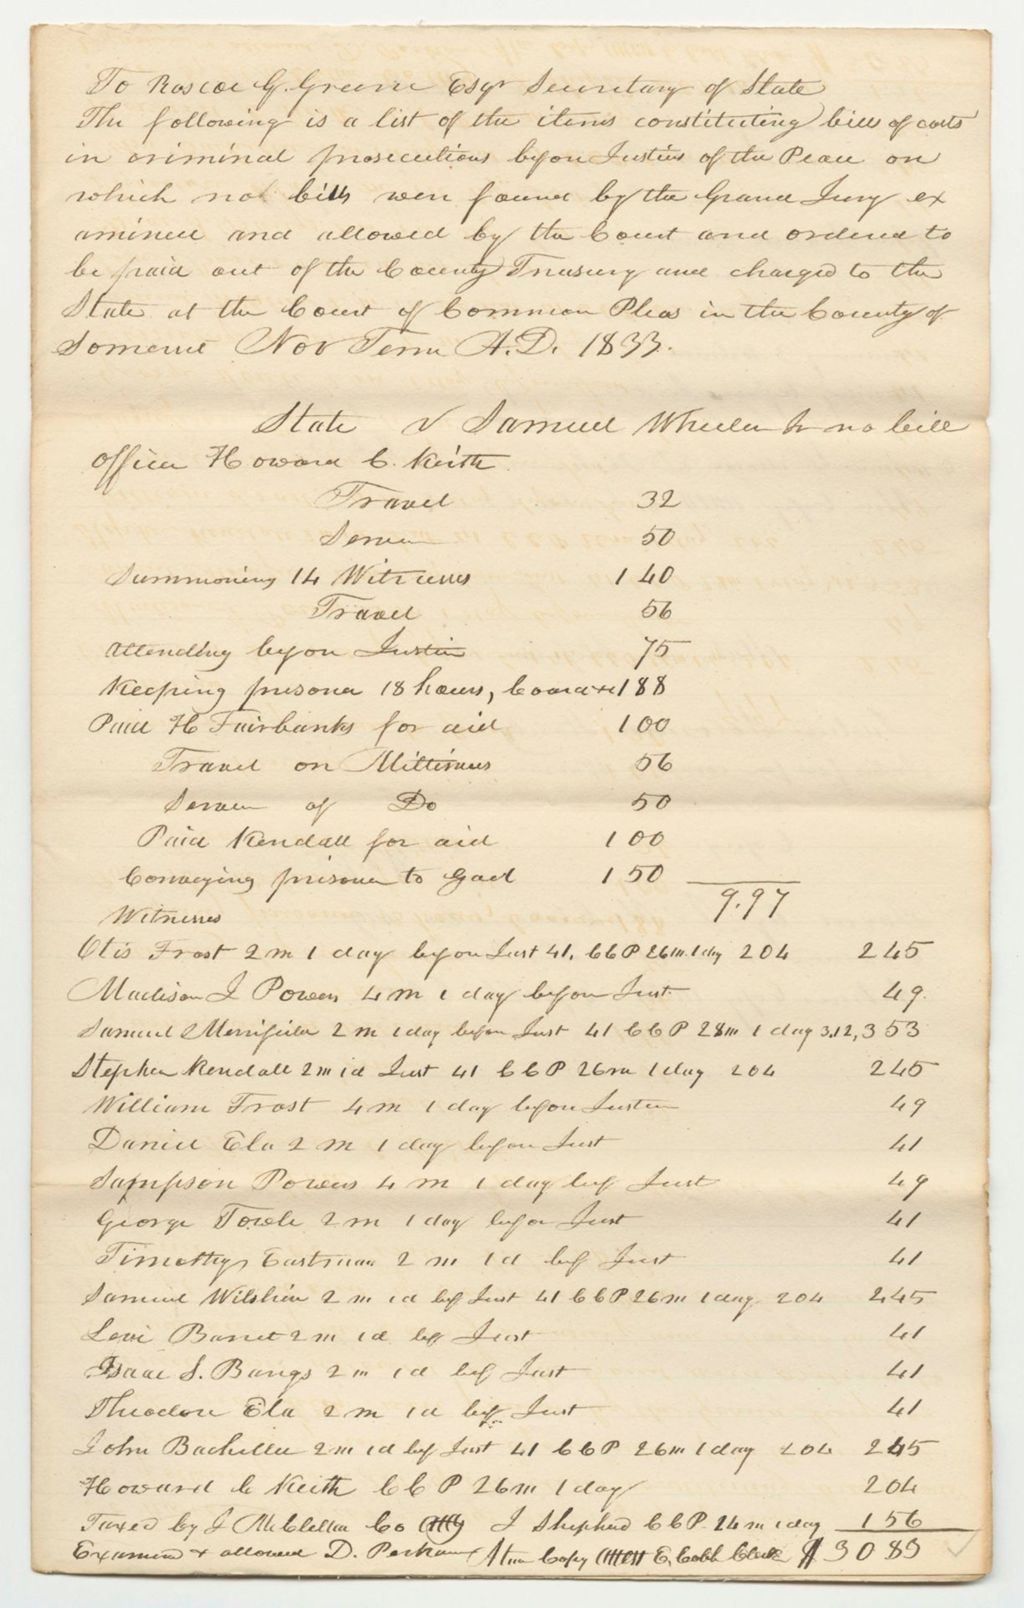 To Roscoe G. Greene Esqr Secretary of State
The following is a list of the items constituting bills of costs
in criminal prosecutions before Justices of the Peace on
which no bills were found by the Grand Jury ex
amined and allowed by the Court and ordered to
be paid out of the County Treasury and charged to the
State at the Court of Common Pleas in the County of
Somerset Nov Term A.D. 1833.
State v Samuel Wheeler Jr no bill
Officer Howard C. Keith
Travel 32
Service 50
Summoning 14 Witnesses 1 40
Travel 56
Attending before Justice 75
Keeping prisoner 18 hours, board &c 1 88
Paid H Fairbanks for aid 1 00
Travel on Mittimus 56
Service of Do 50
Paid Kendall for aid 1 00
Conveying prisoner to Gaol 1 50
9.97
Witnesses
Otis Frost 2 m 1 day before Just 41, C C P 26m. 1 dy 2 04 2 45
Madison J Powers 4 m 1 day before Just 49.
Samuel Merrifield 2 m 1 day before Just 41 C C P 28m 1 day 3.12, 3 53
Stephen Kendall 2 m 1 d Just 41 C C P 26m 1 day 2 04 2 45
William Frost 4 m 1 day before Justice 49
Daniel Ela 2 m 1 day before Just 41
Sampson Powers 4 m 1 day bef Just 49
George Towle 2 m 1 day before Just 41
Timothy Eastman 2 m 1 d bef Just 41
Samuel 2 m 1 d bef Just 41 C C P 26m 1 day 2 04 2 45
Levi 2 m 1 d bef Just 41
Isaac S. Bangs 2 m 1 d bef Just 41
Theodore Ela 2 m 1 d bef Just 41
John Bachelder 2 m 1 d bef Just 41 C C P 26m 1 day 2 04 2 45
Howard C Keith C C P 26m 1 day 2 04
Taxed by J McClellan Co Atty J Shepherd C C P. 14 m 1 day 1 56
Examined & allowed D. Perham A true Copy Attest E. Cobb Clerk $ 30 83